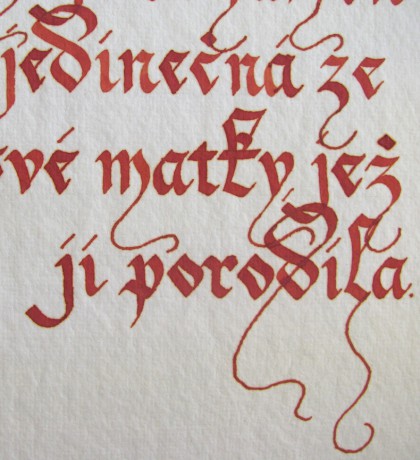 jedinečná ze
své matky jež
ji porodila.